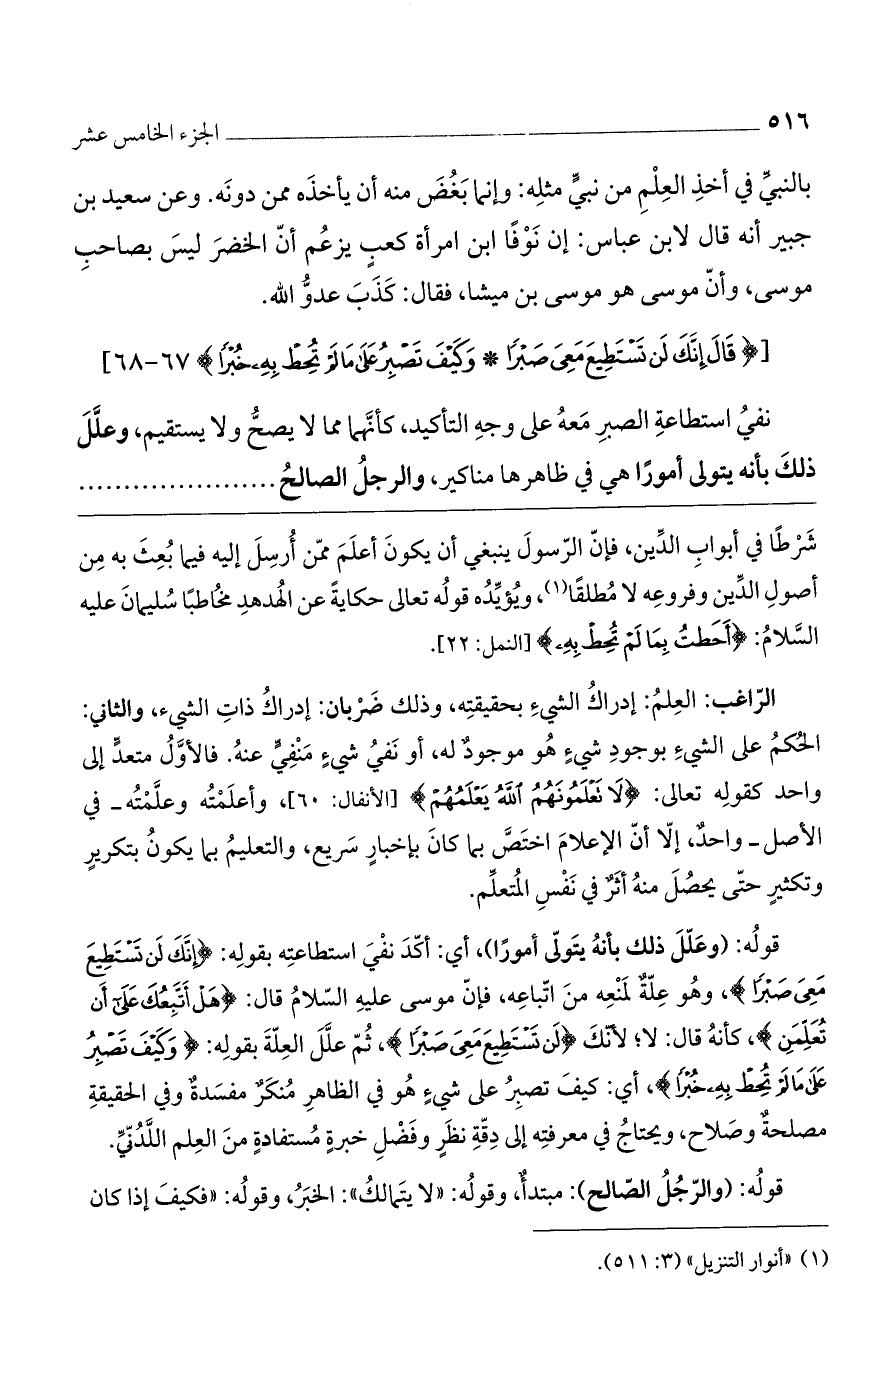 ٥١٦ ــــــــــــــــــــــــــــــــــــــــــــــ الجزء الخامس عشر
بالنبيِّ في أخذِ العِلْمِ من نبيٍّ مثلِه: وإنما يَغُضّ منه أن يأخذَه ممن دونَه. وعن سعيد بن
جبير أنه قال لابن عباس: إن نَوْفًا ابن امرأة كعبٍ يزعُم أنّ الخضرَ ليسَ بصاحبِ
موسى، وأنّ موسى هو موسى بن ميشا، فقال: كَذَبَ عدوُّ الله.
[﴿قَالَ إِنَّكَ لَن تَسْتَطِيعَ مَعِىَ صَبْرًا * وَكَيْفَ تَصْبِرُ عَلَىٰ مَا لَمْ تُحِطْ بِهِۦ خُبْرًا﴾ ٦٧-٦٨]
نفيُ استطاعةِ الصبرِ مَعهُ على وجهِ التأكيد، كأنَّها مما لا يصحُّ ولا يستقيم، وعلَّلَ
ذلكَ بأنه يتولى أمورًا هي في ظاهرها مناكير، والرجلُ الصالحُ......................
شَرْطًا في أبوابِ الدِّين، فإنّ الرّسولَ ينبغي أن يكونَ أعلَمَ ممّن أُرسِلَ إليه فيما بُعِثَ به مِن
أصولِ الدِّين وفروعِه لا مُطلقًا(١)، ويُؤيِّدُه قولُه تعالى حكايةً عن الهُدهدِ مخُاطبًا سُليمانَ عليه
السَّلامُ: ﴿أَحَطتُ بِمَا لَمْ تُحِطْ بِهِۦ﴾ [النمل: ٢٢].
الرّاغب: العِلمُ: إدراكُ الشيءِ بحقيقتِه، وذلك ضَرْبان: إدراكُ ذاتِ الشيء، والثاني:
الحُكمُ على الشيءِ بوجودِ شيءٍ هُو موجودٌ له، أو نَفيُ شيءٍ مَنْفِيٍّ عنهُ. فالأوَّلُ متعدٍّ إلى
واحد كقولِه تعالى: ﴿لَا تَعْلَمُونَهُمُ ٱللَّهُ يَعْلَمُهُمْ﴾ [الأنفال: ٦٠]، وأعلَمْتُه وعلَّمْتُه ـ في
الأصل ـ واحدٌ، إلّا أنّ الإعلامَ اختَصَّ بما كانَ بإخبارٍ سَريع، والتعليمُ بما يكونُ بتكريرٍ
وتكثيرٍ حتّى يحصُلَ منهُ أثرٌ في نَفْسِ المُتعلِّم.
قولُه: (وعَلّلَ ذلك بأنهُ يَتولّى أمورًا)، أي: أكّدَ نفْيَ استطاعتِه بقولِه: ﴿إِنَّكَ لَن تَسْتَطِيعَ
مَعِىَ صَبْرًا﴾، وهُو عِلّةٌ لمَنْعِه منَ اتّباعِه، فإنّ موسى عليهِ السّلامُ قال: ﴿هَلْ أَتَّبِعُكَ عَلَىٰٓ أَن
تُعَلِّمَنِ﴾، كأنهُ قال: لا؛ لأنّكَ ﴿لَن تَسْتَطِيعَ مَعِىَ صَبْرًا﴾، ثُمّ علَّلَ العِلّةَ بقولِه: ﴿وَكَيْفَ تَصْبِرُ
عَلَىٰ مَا لَمْ تُحِطْ بِهِۦ خُبْرًا﴾، أي: كيفَ تصبِرُ على شيءٍ هُو في الظاهرِ مُنكَرٌ مفسَدةٌ وفي الحقيقةِ
مصلحةٌ وصَلاح، ويحتاجُ في معرفتِه إلى دِقّةِ نظَرٍ وفَضْلِ خبرةٍ مُستفادةٍ منَ العِلم اللَّدُنّيِّ.
قولُه: (والرّجُلُ الصّالح): مبتدأٌ، وقولُه: «لا يتمالكُ»: الخبَرُ، وقولُه: «فكيفَ إذا كان
(١) «أنوار التنزيل» (٣: ٥١١).